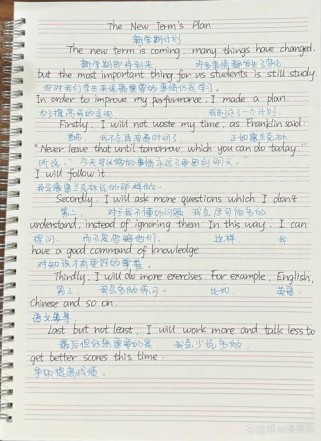 The New Term's Plan
新学期计划
The new term is coming, many things have changed,
新学期即将到来 许多事情都发生了变化
but the most important thing for us students is still study.
但对我们学生来说最重要的事情仍是学习。
In order to improve my performance, I made a plan.
为了提高我的表现 我制定了一个计划
Firstly, I will not waste my time, as Franklin said:
首先 我不会再浪费时间了 正如富兰克林
"Never leave that until tomorrow which you can do today."
所说:"今天可以做的事情永远不要拖到明天。"
I will follow it.
我会像富兰克林说的那样做。
Secondly, I will ask more questions which I don't
第二, 对于我不懂的问题 我会尽可能多的
understand, instead of ignoring them. In this way, I can
提问, 而不是忽略他们, 这样, 我
have a good command of knowledge.
对知识才有更好的掌握。
Thirdly, I will do more exercises. For example, English,
第三 我会多做练习。 比如, 英语
Chinese and so on.
语文等等
Last but not least, I will work more and talk less to
最后但仍然重要的是 我会少说多做,
get better scores this time.
争取提高成绩。